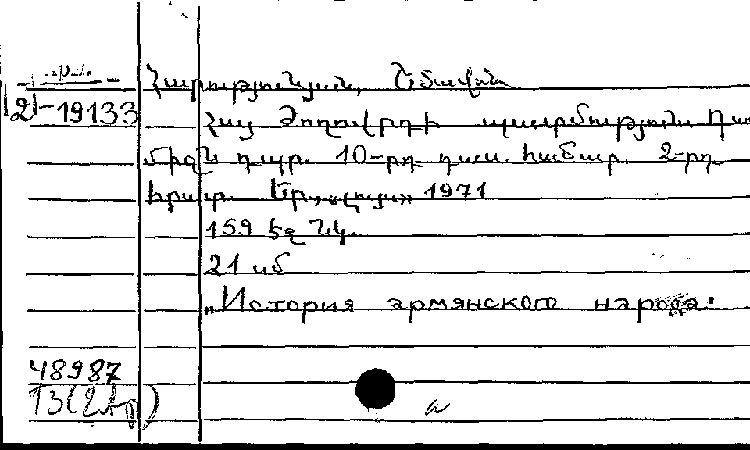 |2|-19133 Հարությունյան, Շմավոն
Հայ ժողովրդի պատմություն Դա
միջն դպր. 10-րդ դաս. համար. 2-րդ
հրատ. Եր., "Լույս" 1971
159 էջ Նկ.
21 սմ
„История армянского народа"
48987
13(2հր)